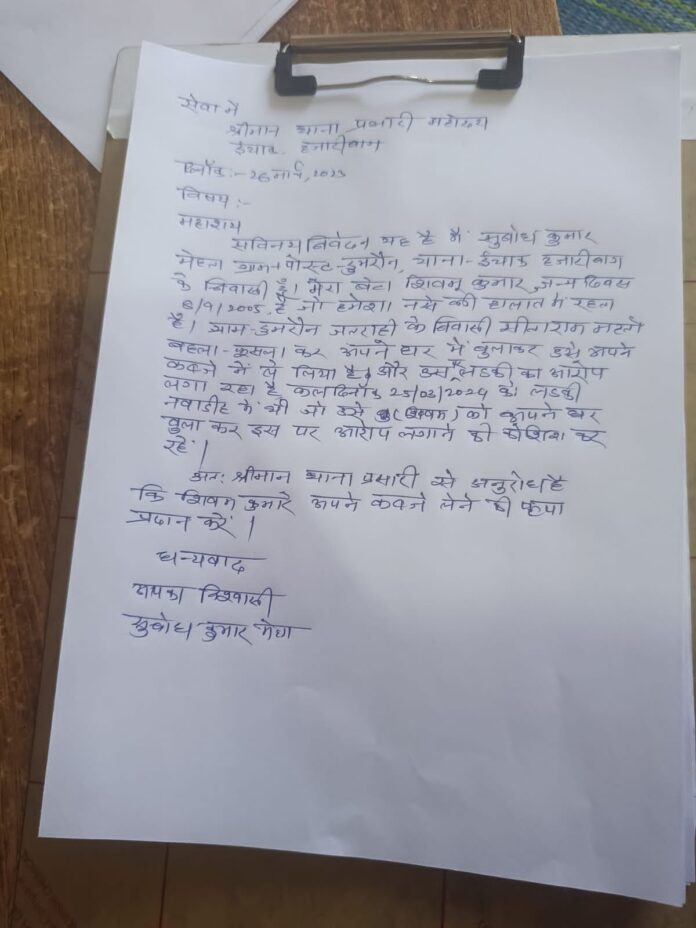 सेवा में
श्रीमान थाना प्रभारी महोदय
ईचाक हजारीबाग
दिनाँक:- 26 मार्च, 2023
विषय:-
महाशय
सविनय निवेदन यह है मैं सुबोध कुमार
मेहता ग्राम+पोस्ट-डुमरौन, थाना-ईचाक हजारीबाग
के निवासी हूँ। मेरा बेटा शिवम् कुमार जन्म दिवस
8/9/2005, है जो हमेशा नसे की हालात में रहता
है। ग्राम-डुमरौन जलराही के निवासी सीताराम महतो
बहला-फुसला कर अपने घर में बुलाकर उसे अपने
कबजे में ले लिया है। और उस लडकी का आरोप
लगा रहा है कल दिनाँक 25/03/2024 को लडकी
नवाडीह में थी जो उसे (शिवम) को अपने घर
बुला कर इस पर आरोप लगाने की कोशिश कर
रहें।
अत: श्रीमान थाना प्रभारी से अनुरोध है
कि शिवम कुमार अपने कबजे लेने की कृपा
प्रदान करें।
धन्यवाद
आपका विश्वासी
सुबोध कुमार मेहता